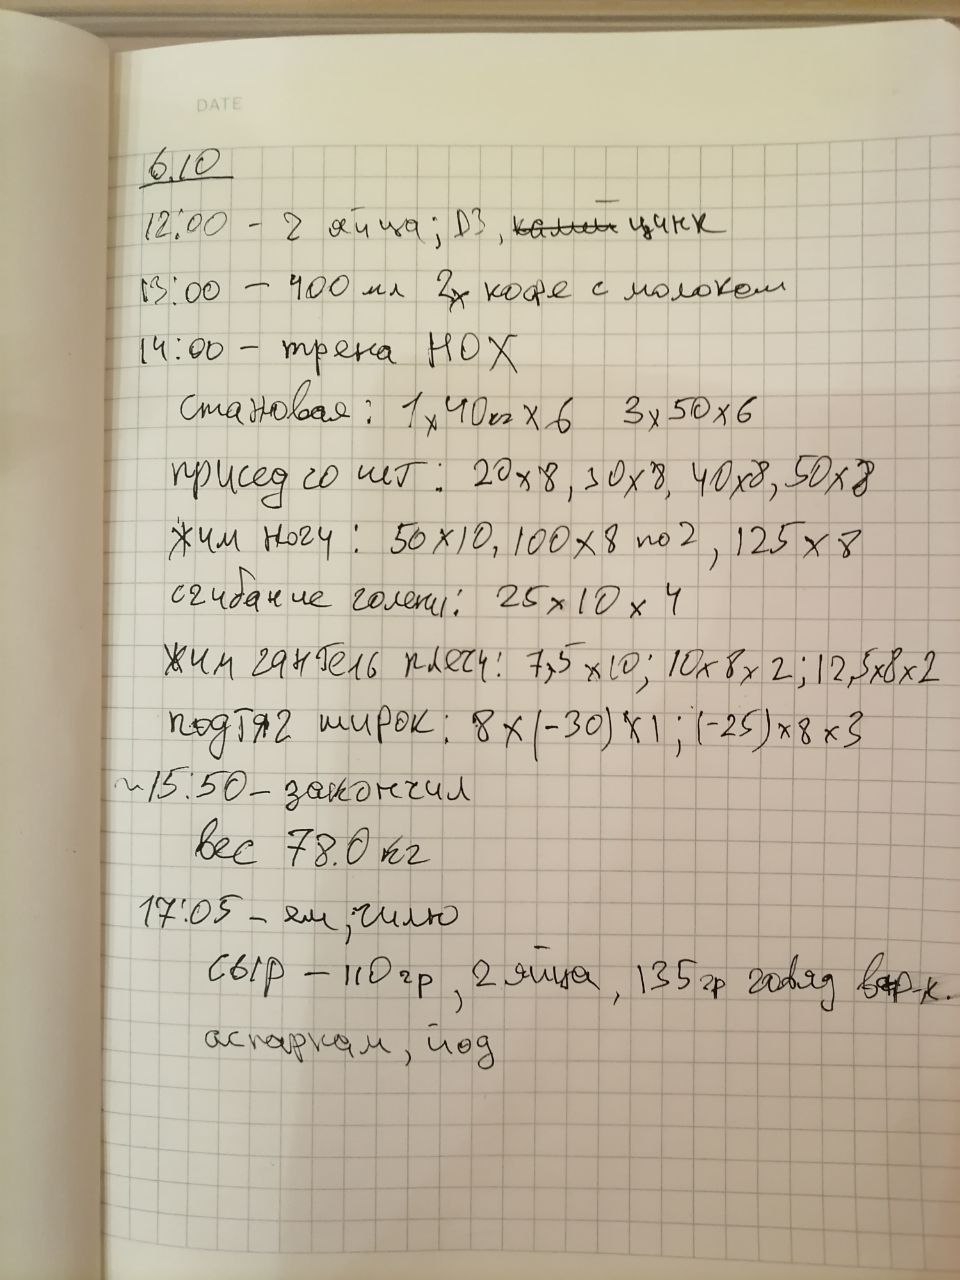 DATE
6.10
12:00 - 2 яйца; D3, калий цинк
13:00 - 400 мл 2x кофе с молоком
14:00 - трена НОХ
становая: 1x40кг x 6 3x50x6
присед со шт: 20x8, 30x8, 40x8, 50x8
жим ноги: 50x10, 100x8 по 2, 125x8
сгибание голени: 25x10x4
жим гантель плечи: 7,5x10; 10x8x2; 12,5x8x2
подтяг широк: 8x(-30)x1; (-25)x8x3
~15:50 - закончил
вес 78.0 кг
17:05 - ем, чилю
сыр - 110 гр, 2 яйца, 135 гр говяд вар-к.
аспаркам, йод